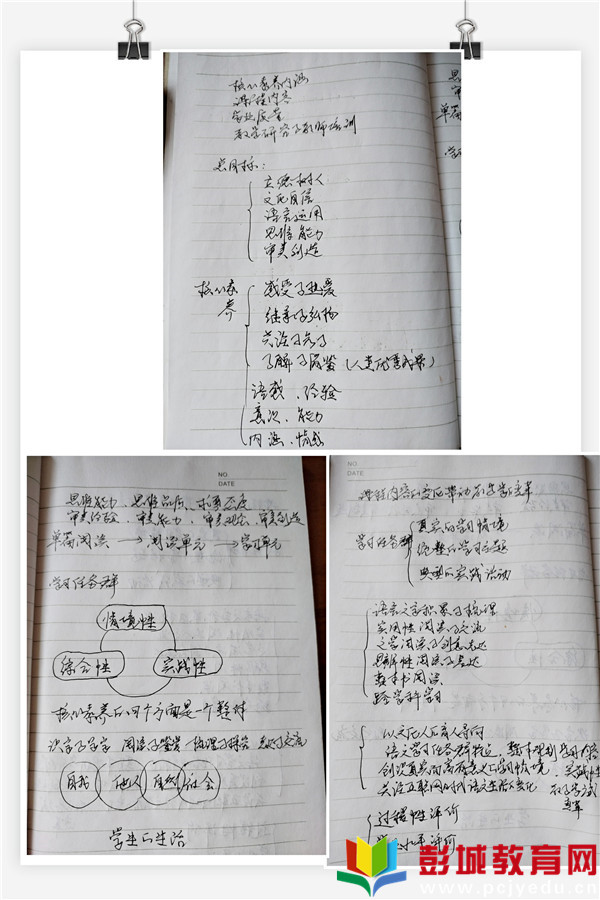 核心素养内涵
课程内容
学业质量
教学研究与教师培训
总目标：
立德树人
文化自信
语言运用
思维能力
审美创造
核心素养
感受与热爱
继承与弘扬
关注与参与
了解与借鉴（人类优秀成果）
语感、经验
意识、能力
内涵、情感
NO
DATE
思维能力、思维品质、求真态度
审美经验、审美能力、审美观念、审美创造
单篇阅读 → 阅读单元 → 学习单元
学习任务群
情境性
综合性 实践性
核心素养的四个方面是一个整体
识字与写字 阅读与鉴赏 梳理与探究 表达与交流
自我 他人 自然 社会
学生的生活
NO
DATE
课程内容的变化带动教学变革
学习任务群
真实的学习情境
统整的学习主题
典型的实践活动
语言文字积累与梳理
实用性阅读与交流
文学阅读与创意表达
思辨性阅读与表达
整本书阅读
跨学科学习
以文化人的育人导向
语文学习任务群特点，整体规划学习内容
创设真实而富有意义的学习情境，
关注互联网时代语文生活的变化
过程性评价
彭城教育网
www.pcjyedu.cn